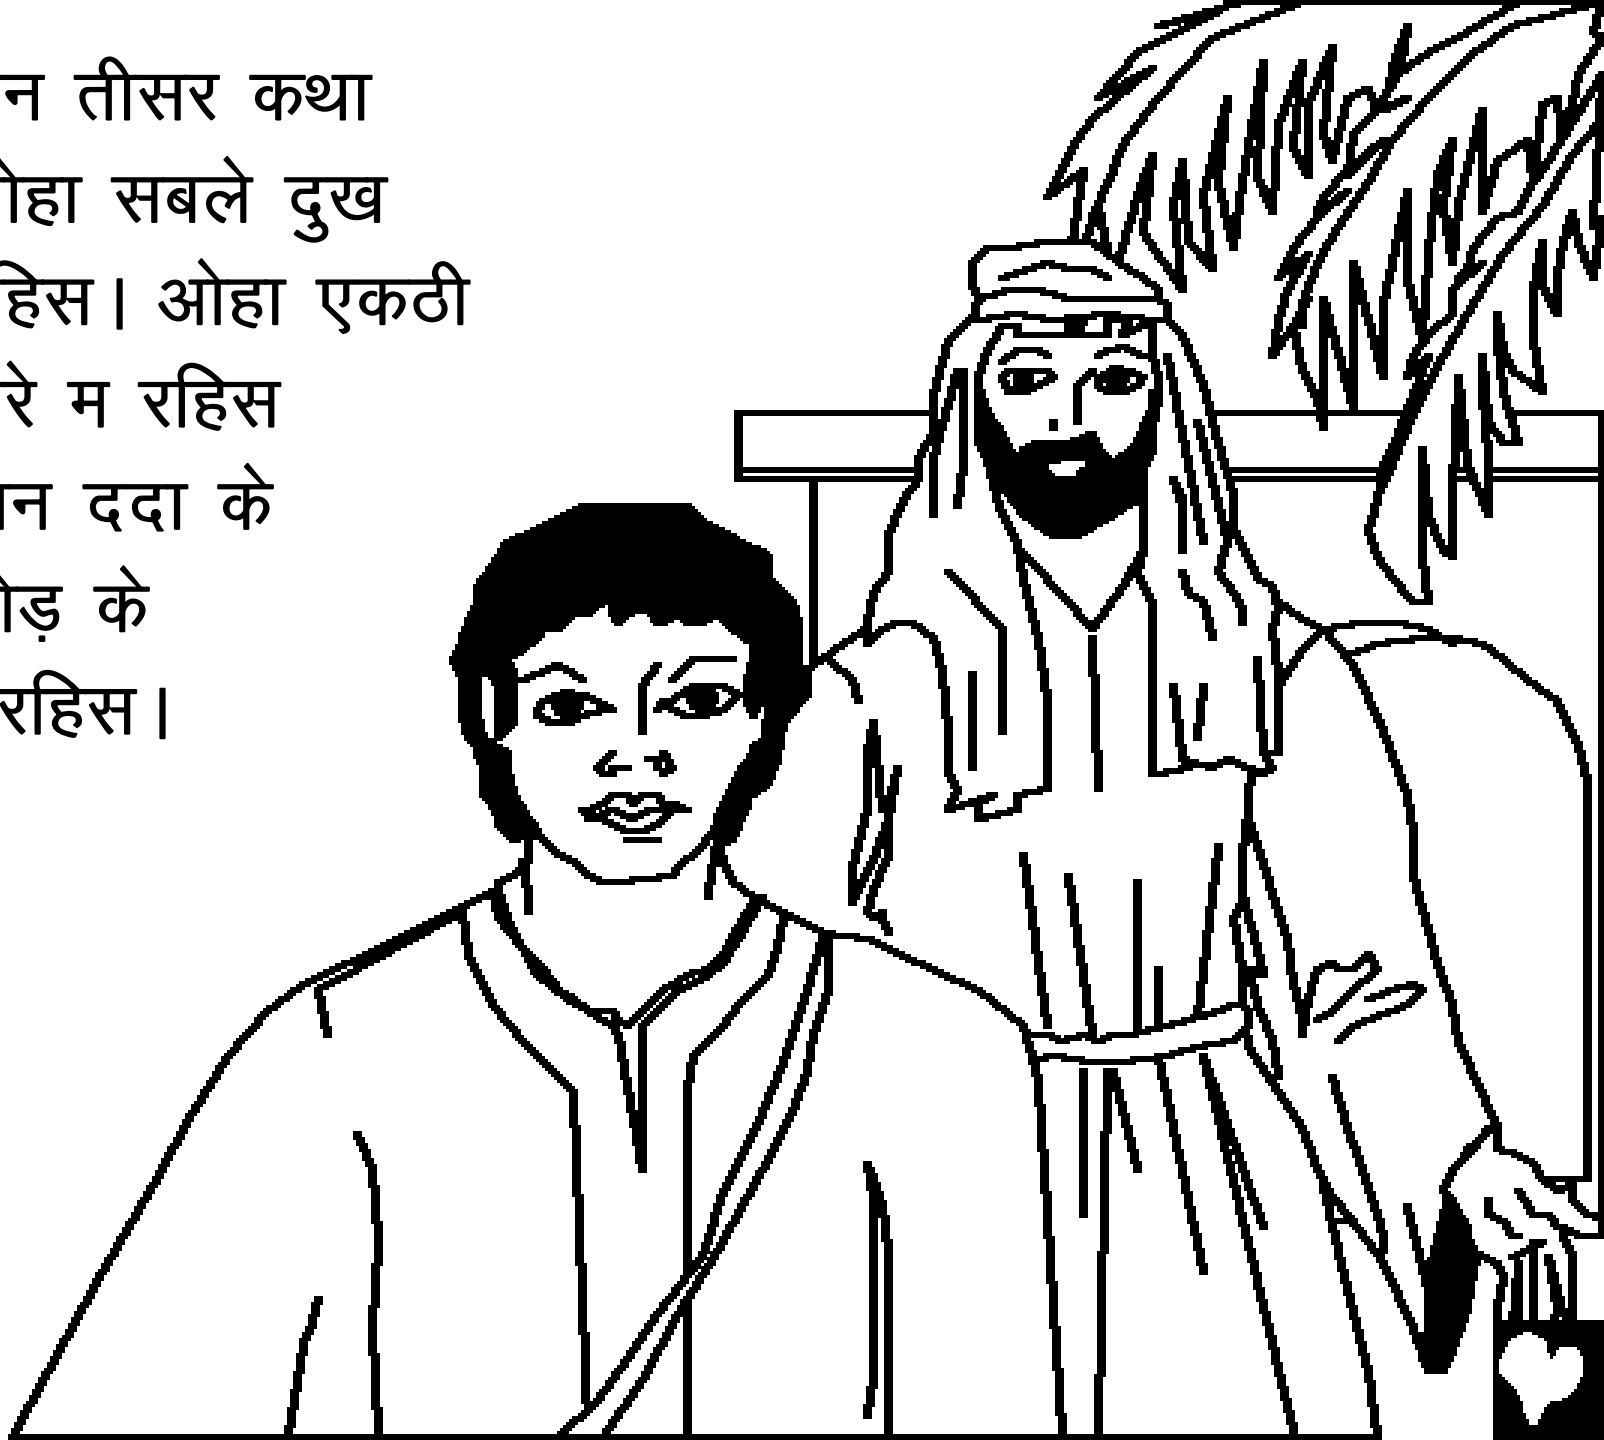 न तीसर कथा
ओहा सबले दुख
रहिस। ओहा एकठी
रे म रहिस
न ददा के
ड़ के
रहिस।